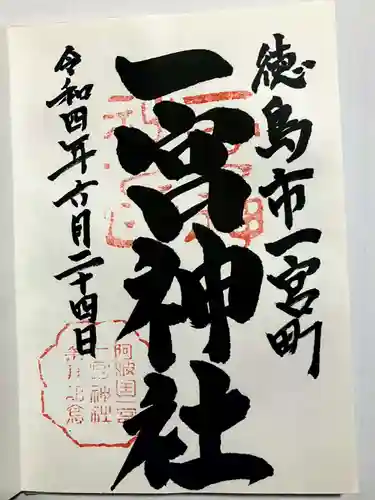 徳島市一宮町
一宮神社
令和四年六月二十四日
阿波国一宮
一宮神社